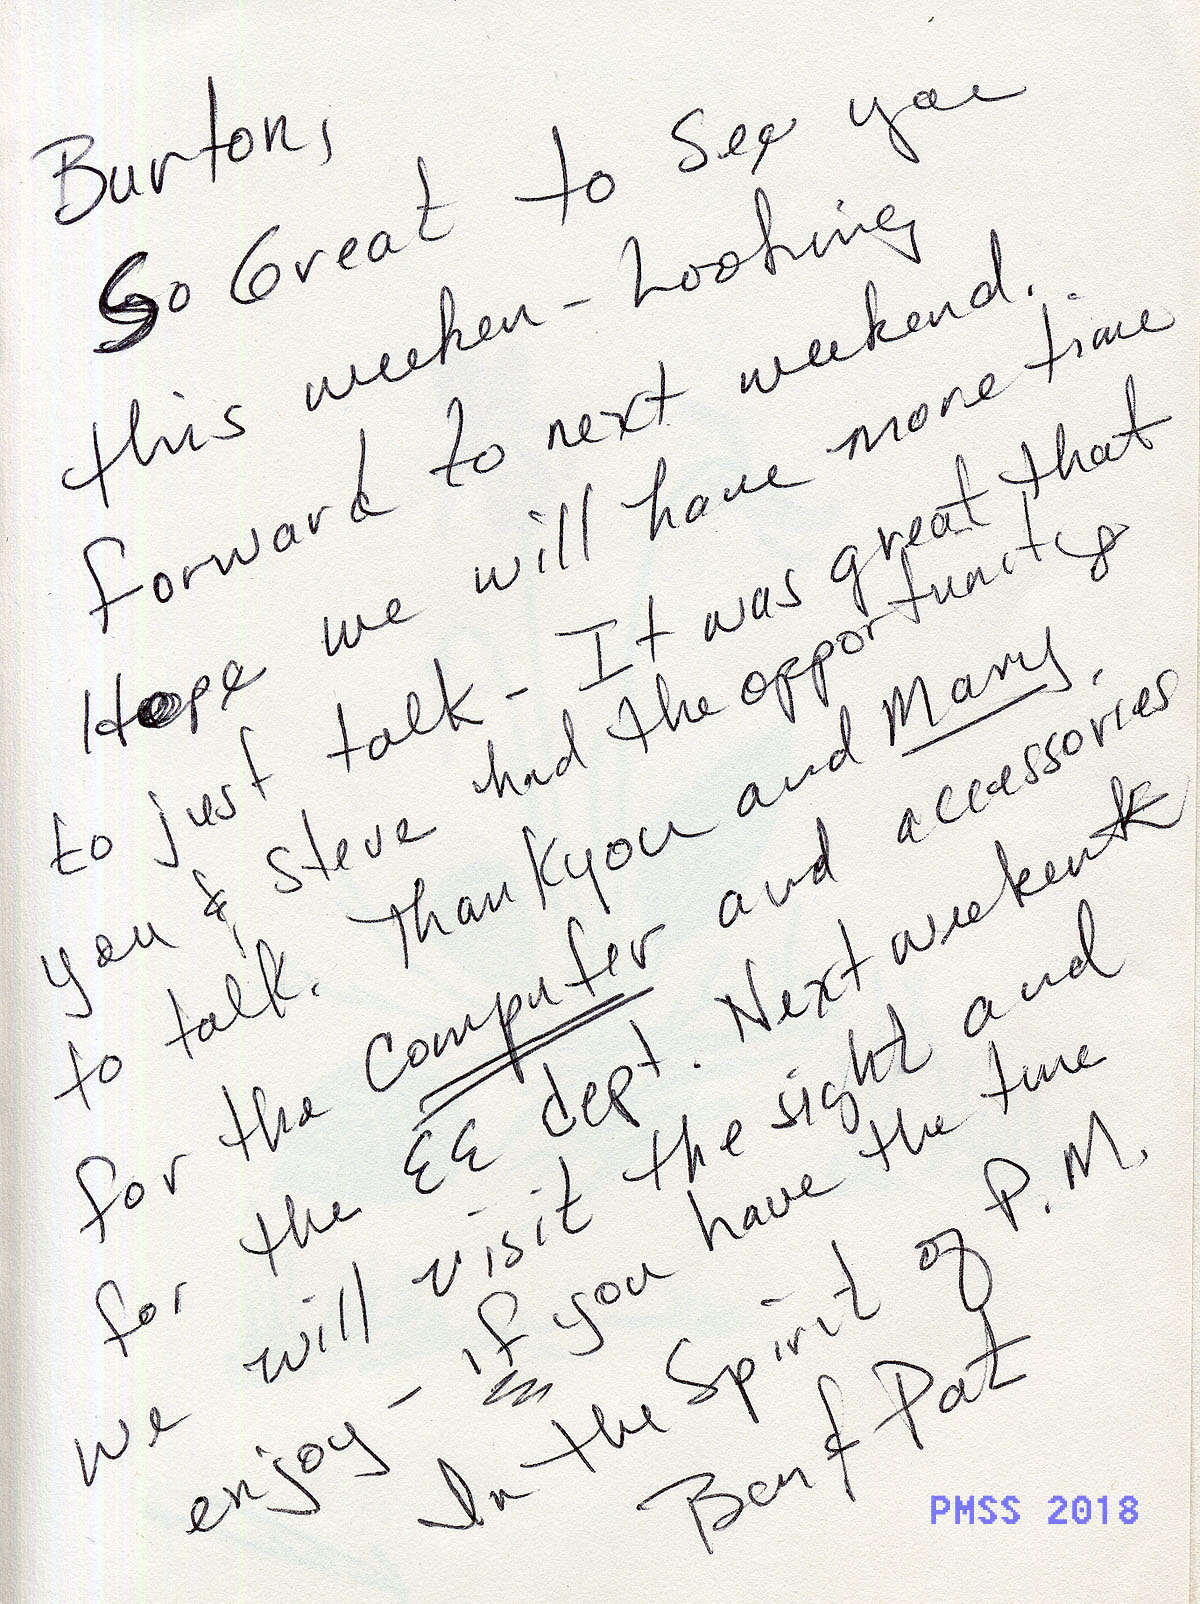 Burton,
So Great to See you
this weeken - Looking
forward to next weekend.
Hope we will have more time
to just talk - It was great that
you & Steve had the opportunity
to talk. Thankyou and Mary,
for the Computer and accessories
for the EE dept. Next weekend
we will visit the sight and
enjoy - if you have the time
In the Spirit of P.M.
Ben & Pat
PMSS 2018